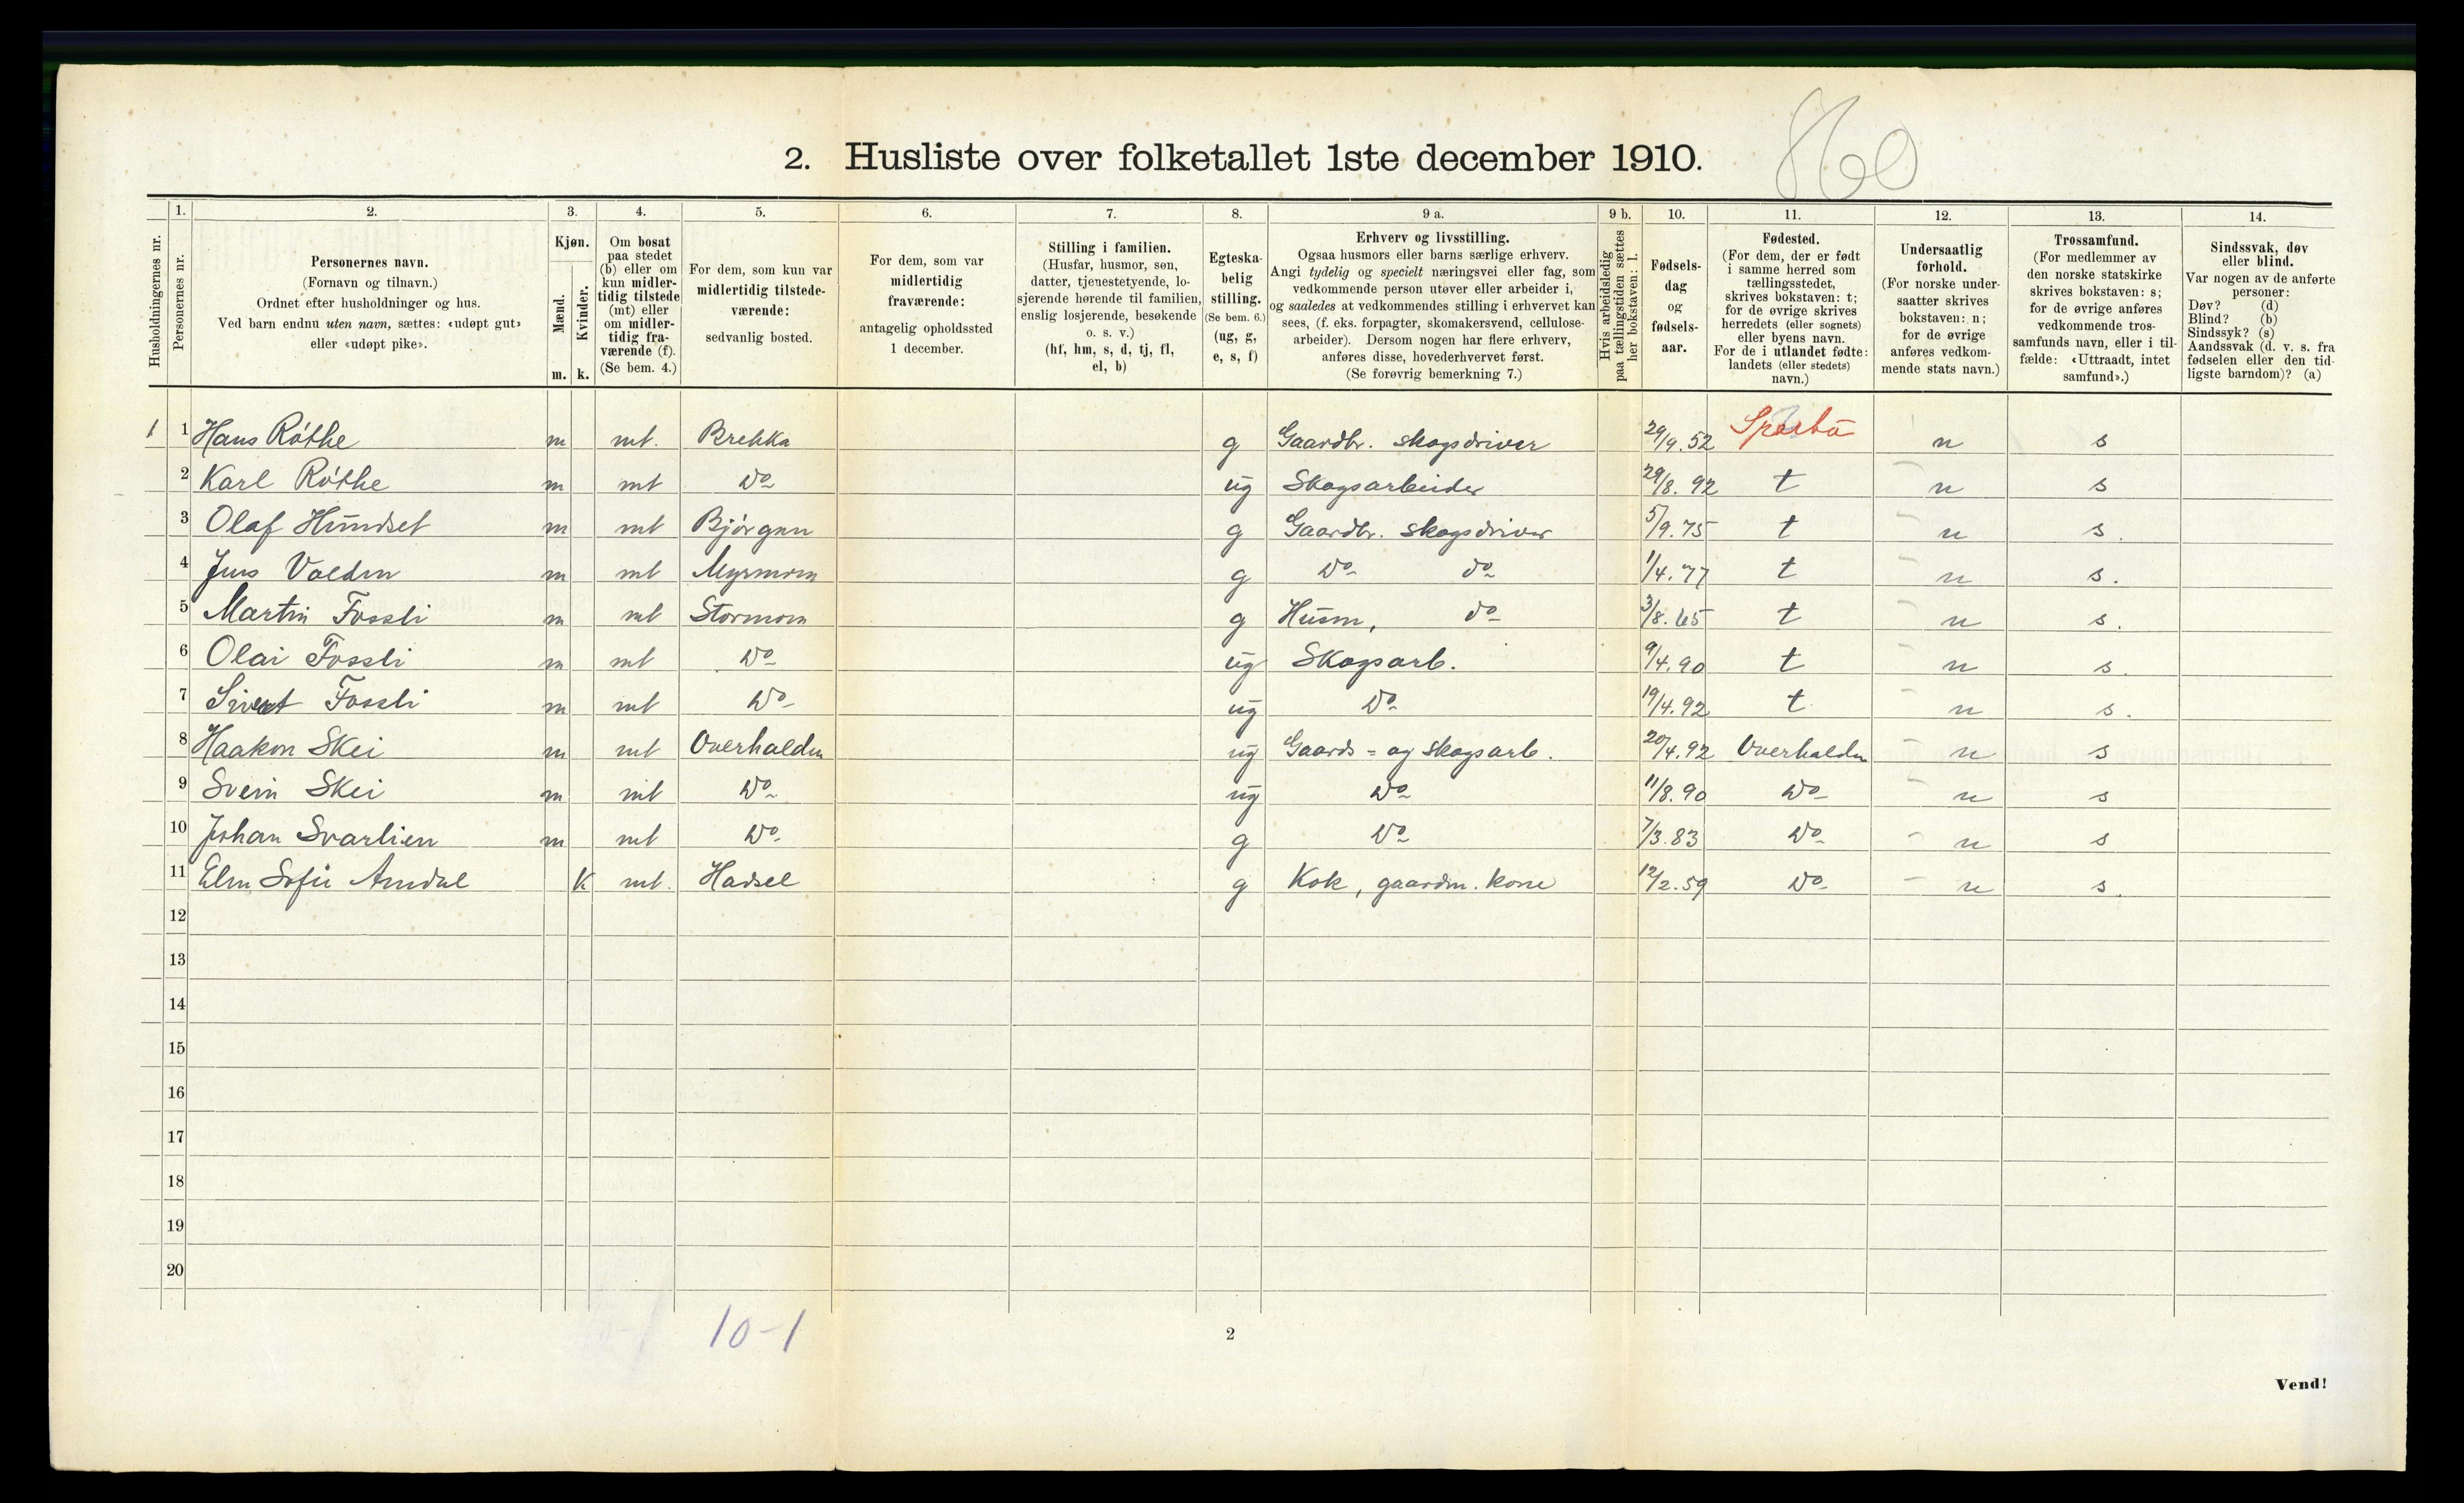 860
2. Husliste over folketallet 1ste december 1910.
Husholdningernes nr.
1.
Personernes nr.
2.
Personernes navn.
(Fornavn og tilnavn.)
Ordnet efter husholdninger og hus.
Ved barn endnu uten navn, sættes: «udøpt gut»
eller «udøpt pike».
3.
Kjøn.
Mænd.
Kvinder.
m. k.
4.
Om bosat
paa stedet
(b) eller om
kun midler-
tidig tilstede
(mt) eller
om midler-
tidig fra-
værende (f).
(Se bem. 4.)
5.
For dem, som kun var
midlertidig tilstede-
værende:
sedvanlig bosted.
6.
For dem, som var
midlertidig
fraværende:
antagelig opholdssted
1 december.
7.
Stilling i familien.
(Husfar, husmor, søn,
datter, tjenestetyende, lo-
sjerende hørende til familien,
enslig losjerende, besøkende
o. s. v.)
(hf, hm, s, d, tj, fl,
el, b)
8.
Egteska-
belig
stilling.
(Se bem. 6.)
(ug, g,
e, s, f)
9 a.
Erhverv og livsstilling.
Ogsaa husmors eller barns særlige erhverv.
Angi tydelig og specielt næringsvei eller fag, som
vedkommende person utøver eller arbeider i,
og saaledes at vedkommendes stilling i erhvervet kan
sees, (f. eks. forpagter, skomakersvend, cellulose-
arbeider). Dersom nogen har flere erhverv,
anføres disse, hovederhvervet først.
(Se forøvrig bemerkning 7.)
9 b.
Hvis arbeidsledig
paa tællingstiden sættes
her bokstaven: l.
10.
Fødsels-
dag
og
fødsels-
aar.
11.
Fødested.
(For dem, der er født
i samme herred som
tællingsstedet,
skrives bokstaven: t;
for de øvrige skrives
herredets (eller sognets)
eller byens navn.
For de i utlandet fødte:
landets (eller stedets)
navn.)
12.
Undersaatlig
forhold.
(For norske under-
saatter skrives
bokstaven: n;
for de øvrige
anføres vedkom-
mende stats navn.)
13.
Trossamfund.
(For medlemmer av
den norske statskirke
skrives bokstaven: s;
for de øvrige anføres
vedkommende tros-
samfunds navn, eller i til-
fælde: «Uttraadt, intet
samfund».)
14.
Sindssvak, døv
eller blind.
Var nogen av de anførte
personer:
Døv? (d)
Blind? (b)
Sindssyk? (s)
Aandssvak (d. v. s. fra
fødselen eller den tid-
ligste barndom)? (a)
1 1 Hans Røthe m mt. Brekka g Gaardbr. skogsdriver 29/9.52 Sparbu n s
2 Karl Røthe m mt Do ug Skogsarbeider 29/8.92 t n s
3 Olaf Hundset m mt Bjørgan g Gaardbr. skogsdriver 5/9.75 t n s.
4 Jens m mt g Do do 1/4.77 t n s.
5 Martin Fossli m mt Stormoen g Husm, do 3/8.65 t n s.
6 Olai Fossli m mt Do ug Skogsarb. 9/4.90 t n s.
7 Sivert Fossli m mt Do ug Do 19/4.92 t n s.
8 Haakon Skei m mt Overhalden ug Gaards= og skogsarb. 20/4.92 Overhalden n s
9 Svein Skei m mt Do ug Do 11/8.90 Do n s
10 Johan Svarlien m mt Do g Do 7/3.83 Do n s
11 Elen Sofie k mt. g Kok, gaardm. kone 12/2.59 Do n s.
12
13
14
15
16
17
18
19
20
10-1
2
Vend!